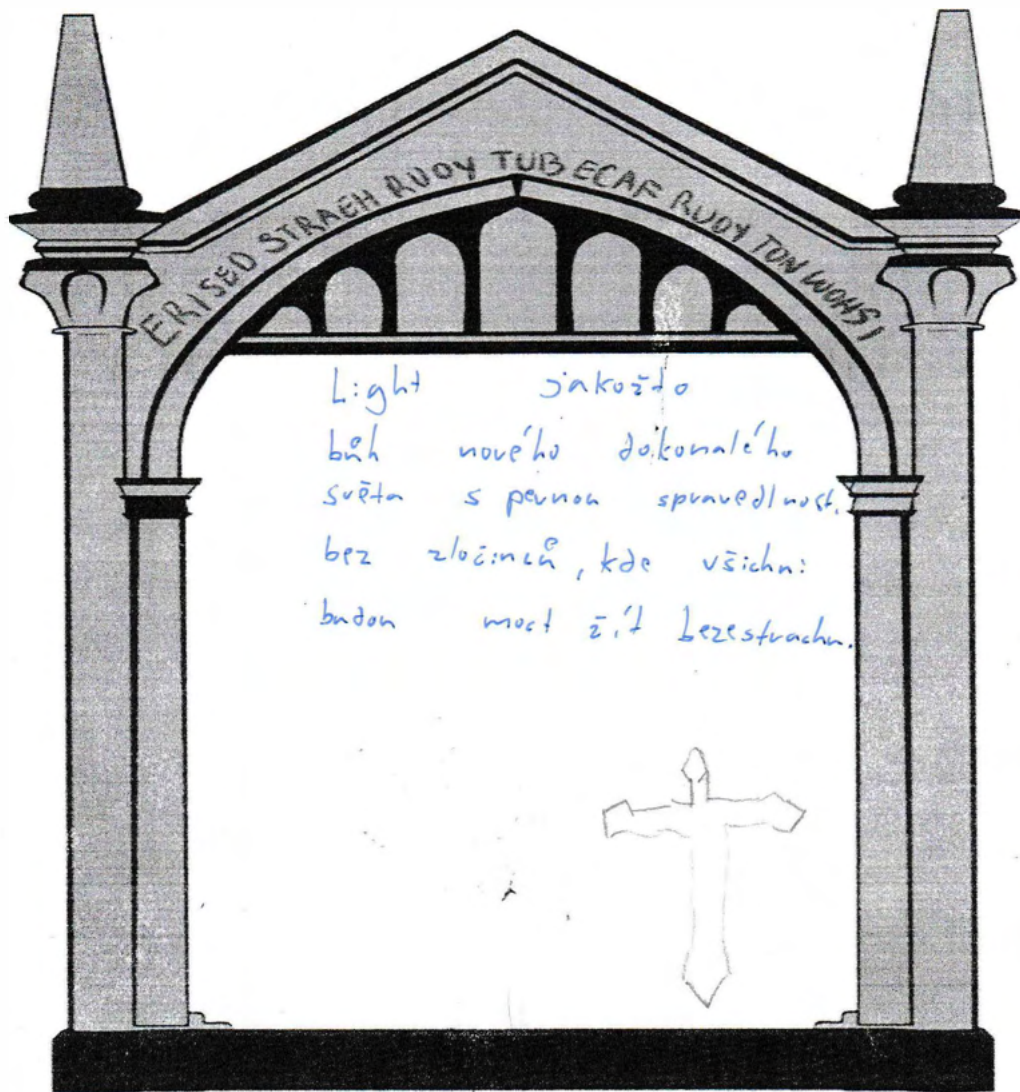 ERISED STRAEH RUOY TUB ECAF RUOY TON WOHSI
Light jakožto
bůh nového dokonalého
světa s pevnou spravedlností
bez zločinců, kde všichni
budou moct žít bezestrachu.